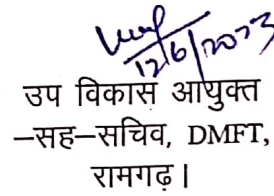 12/6/2023
उप विकास आयुक्त
–सह–सचिव, DMFT,
रामगढ़।